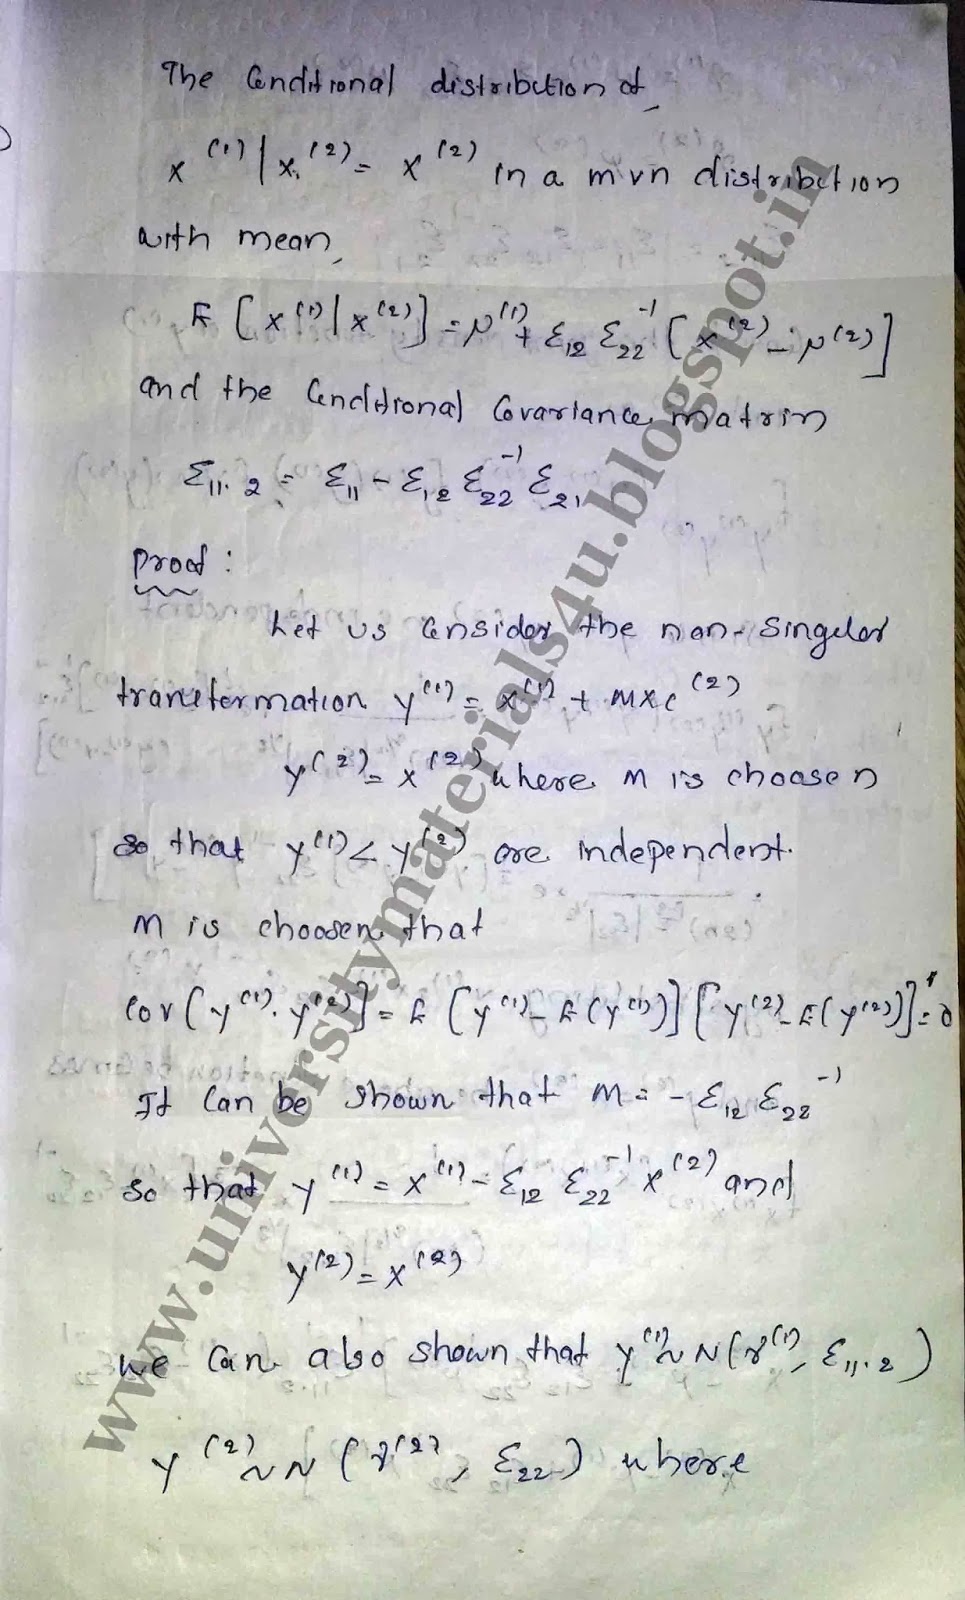 The Conditional distribution of,
x^(1) | x^(2) = x^(2) in a mvn distribution
with mean,
E [x^(1) | x^(2)] = μ^(1) + Σ12 Σ22^-1 [x^(2) - μ^(2)]
and the Conditional Covariance matrix
Σ11.2 = Σ11 - Σ12 Σ22^-1 Σ21
Proof :
Let us Consider the non-singular
transformation y^(1) = x^(1) + Mx^(2)
y^(2) = x^(2) where M is choosen
so that y^(1) & y^(2) are independent.
M is choosen that
Cov (y^(1). y^(2)] = E [y^(1) - E(y^(1))] [y^(2) - E(y^(2))]' = 0
It Can be shown that M = - Σ12 Σ22^-1
so that y^(1) = x^(1) - Σ12 Σ22^-1 x^(2) and
y^(2) = x^(2)
we Can also shown that y^(1) ~ N(γ^(1), Σ11.2)
y^(2) ~ N (γ^(2), Σ22) where
www.universitymaterials4u.blogspot.in